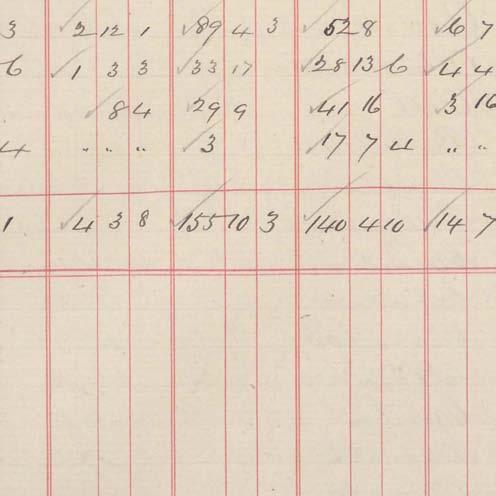 3 ✓ 2 12 1 ✓ 89 4 3 ✓ 52 8 ✓ 6 7
6 ✓ 1 3 3 ✓ 33 17 ✓ 28 13 6 ✓ 4 4
✓ 8 4 ✓ 29 9 ✓ 41 16 ✓ 3 16
4 " " " ✓ 3 ✓ 17 7 4 " "
1 ✓ 4 3 8 ✓ 155 10 3 ✓ 140 4 10 ✓ 14 7